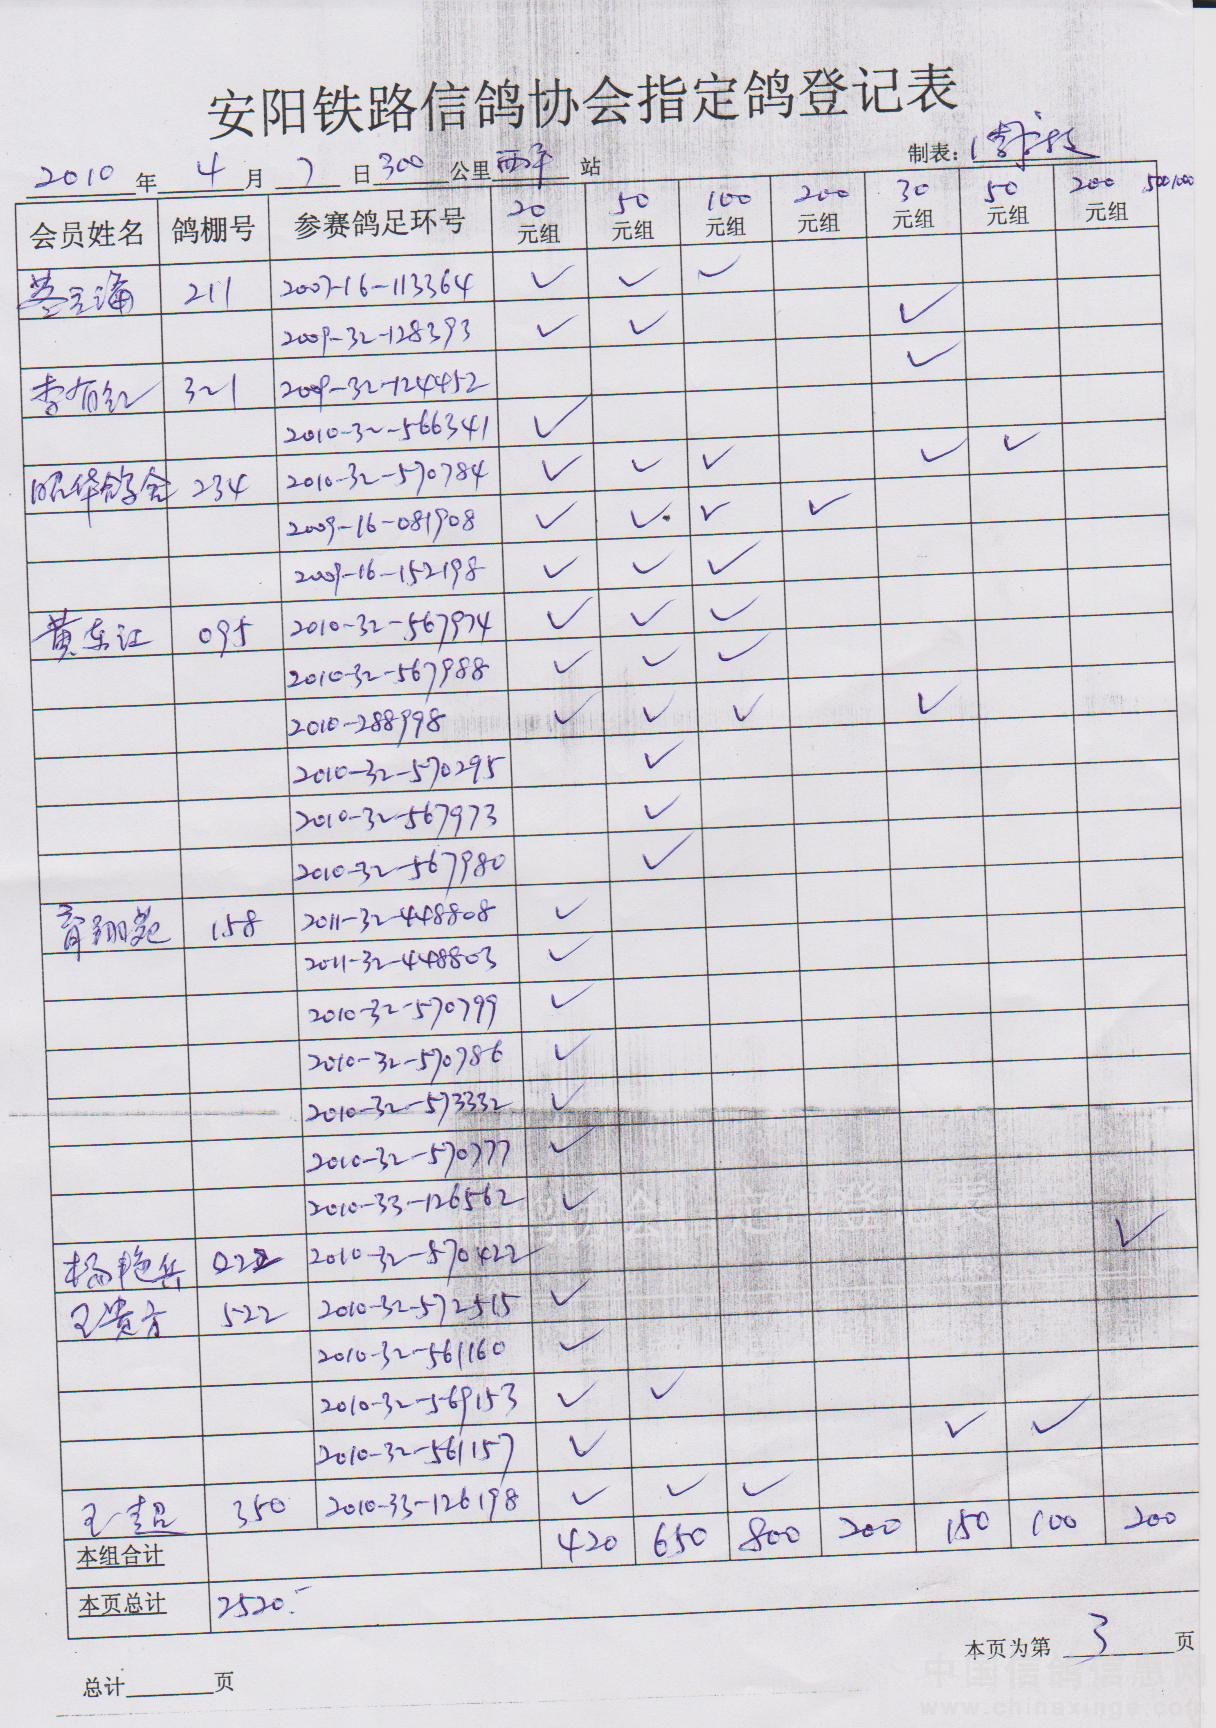 安阳铁路信鸽协会指定鸽登记表
2010年4月7日300公里西平站 制表：
会员姓名 鸽棚号 参赛鸽足环号 20元组 50元组 100元组 200元组 30元组 50元组 200元组 500 1000
211 2007-16-113364 ✓ ✓ ✓
2009-32-128393 ✓ ✓ ✓
李有红 321 2009-32-124452 ✓
2010-32-566341 ✓
昭华鸽舍 234 2010-32-570784 ✓ ✓ ✓ ✓ ✓
2009-16-081908 ✓ ✓ ✓ ✓
2009-16-152198 ✓ ✓ ✓
黄东江 095 2010-32-567974 ✓ ✓ ✓
2010-32-567988 ✓ ✓ ✓
2010-288998 ✓ ✓ ✓ ✓
2010-32-570295 ✓
2010-32-567973 ✓
2010-32-567980 ✓
育翔苑 158 2011-32-448808 ✓
2011-32-448803 ✓
2010-32-570799 ✓
2010-32-570786 ✓
2010-32-573332 ✓
2010-32-570777 ✓
2010-33-126562 ✓
杨艳兵 022 2010-32-570422 ✓
王贵方 522 2010-32-572515 ✓
2010-32-561160 ✓
2010-32-569153 ✓ ✓
2010-32-561157 ✓ ✓ ✓
王超 350 2010-33-126198 ✓ ✓ ✓
本组合计 420 650 800 200 150 100 200
本页总计 2520.-
本页为第 3 页
总计 页
中国信鸽信息网
www.chinaxinge.com